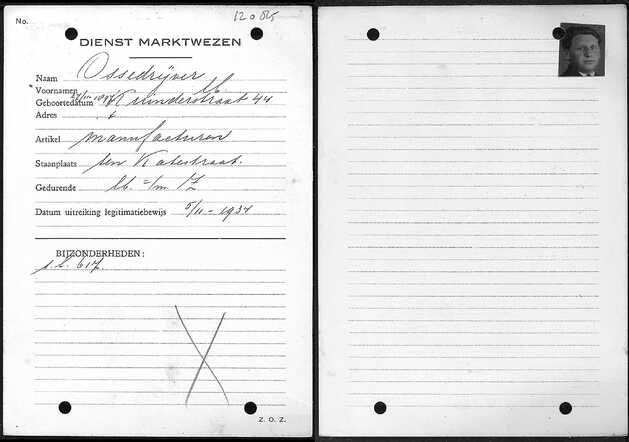 No. 12085
DIENST MARKTWEZEN
Naam Ossedrijver
Voornamen M.
Geboortedatum Krinderstraat 44
Adres
Artikel manufacturen
Staanplaats ten Katestraat.
Gedurende
Datum uitreiking legitimatiebewijs 5/11-1937
BIJZONDERHEDEN:
s.k. 617.
Z. O. Z.